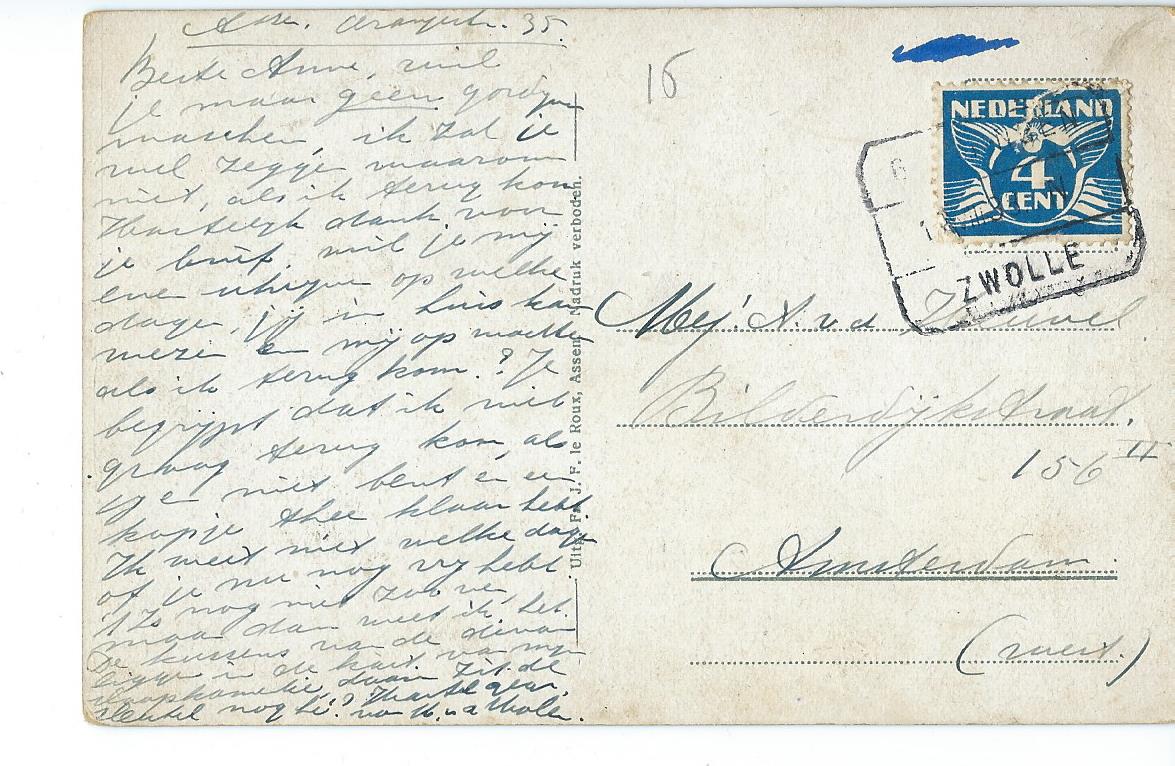 Assen. Oranjestr. 35.
Beste Anne, wil
je maar geen gordijn
wasschen, ik zal je
wel zegge waarom
niet, als ik terug kom
Hartelijk dank voor
je brief, wil je mij
eve schrijven op welke
dage, jij in huis kan
weze en mij op wachten
als ik terug kom.? Je
begrijpt dat ik niet
graag terug kom, als
jij er niet bent en een
kopje thee klaar hebt.
Ik weet niet welke dage
of je nu nog vrij hebt
't Zo nog niet zoo ver
maar dan weet ik het.
De kussens van de divan
ligge in de kast van mijn
slaapkamertje, daar zit de
sleutel nog in? Hartel. gegr.
van
Uitg. Fa. J. F. le Roux, Assen. Nadruk verboden.
16
NEDERLAND
4
CENT
ZWOLLE
Mej. A. v. d. Heuvel
Bilderdijkstraat.
156 II
Amsterdam
(west.)